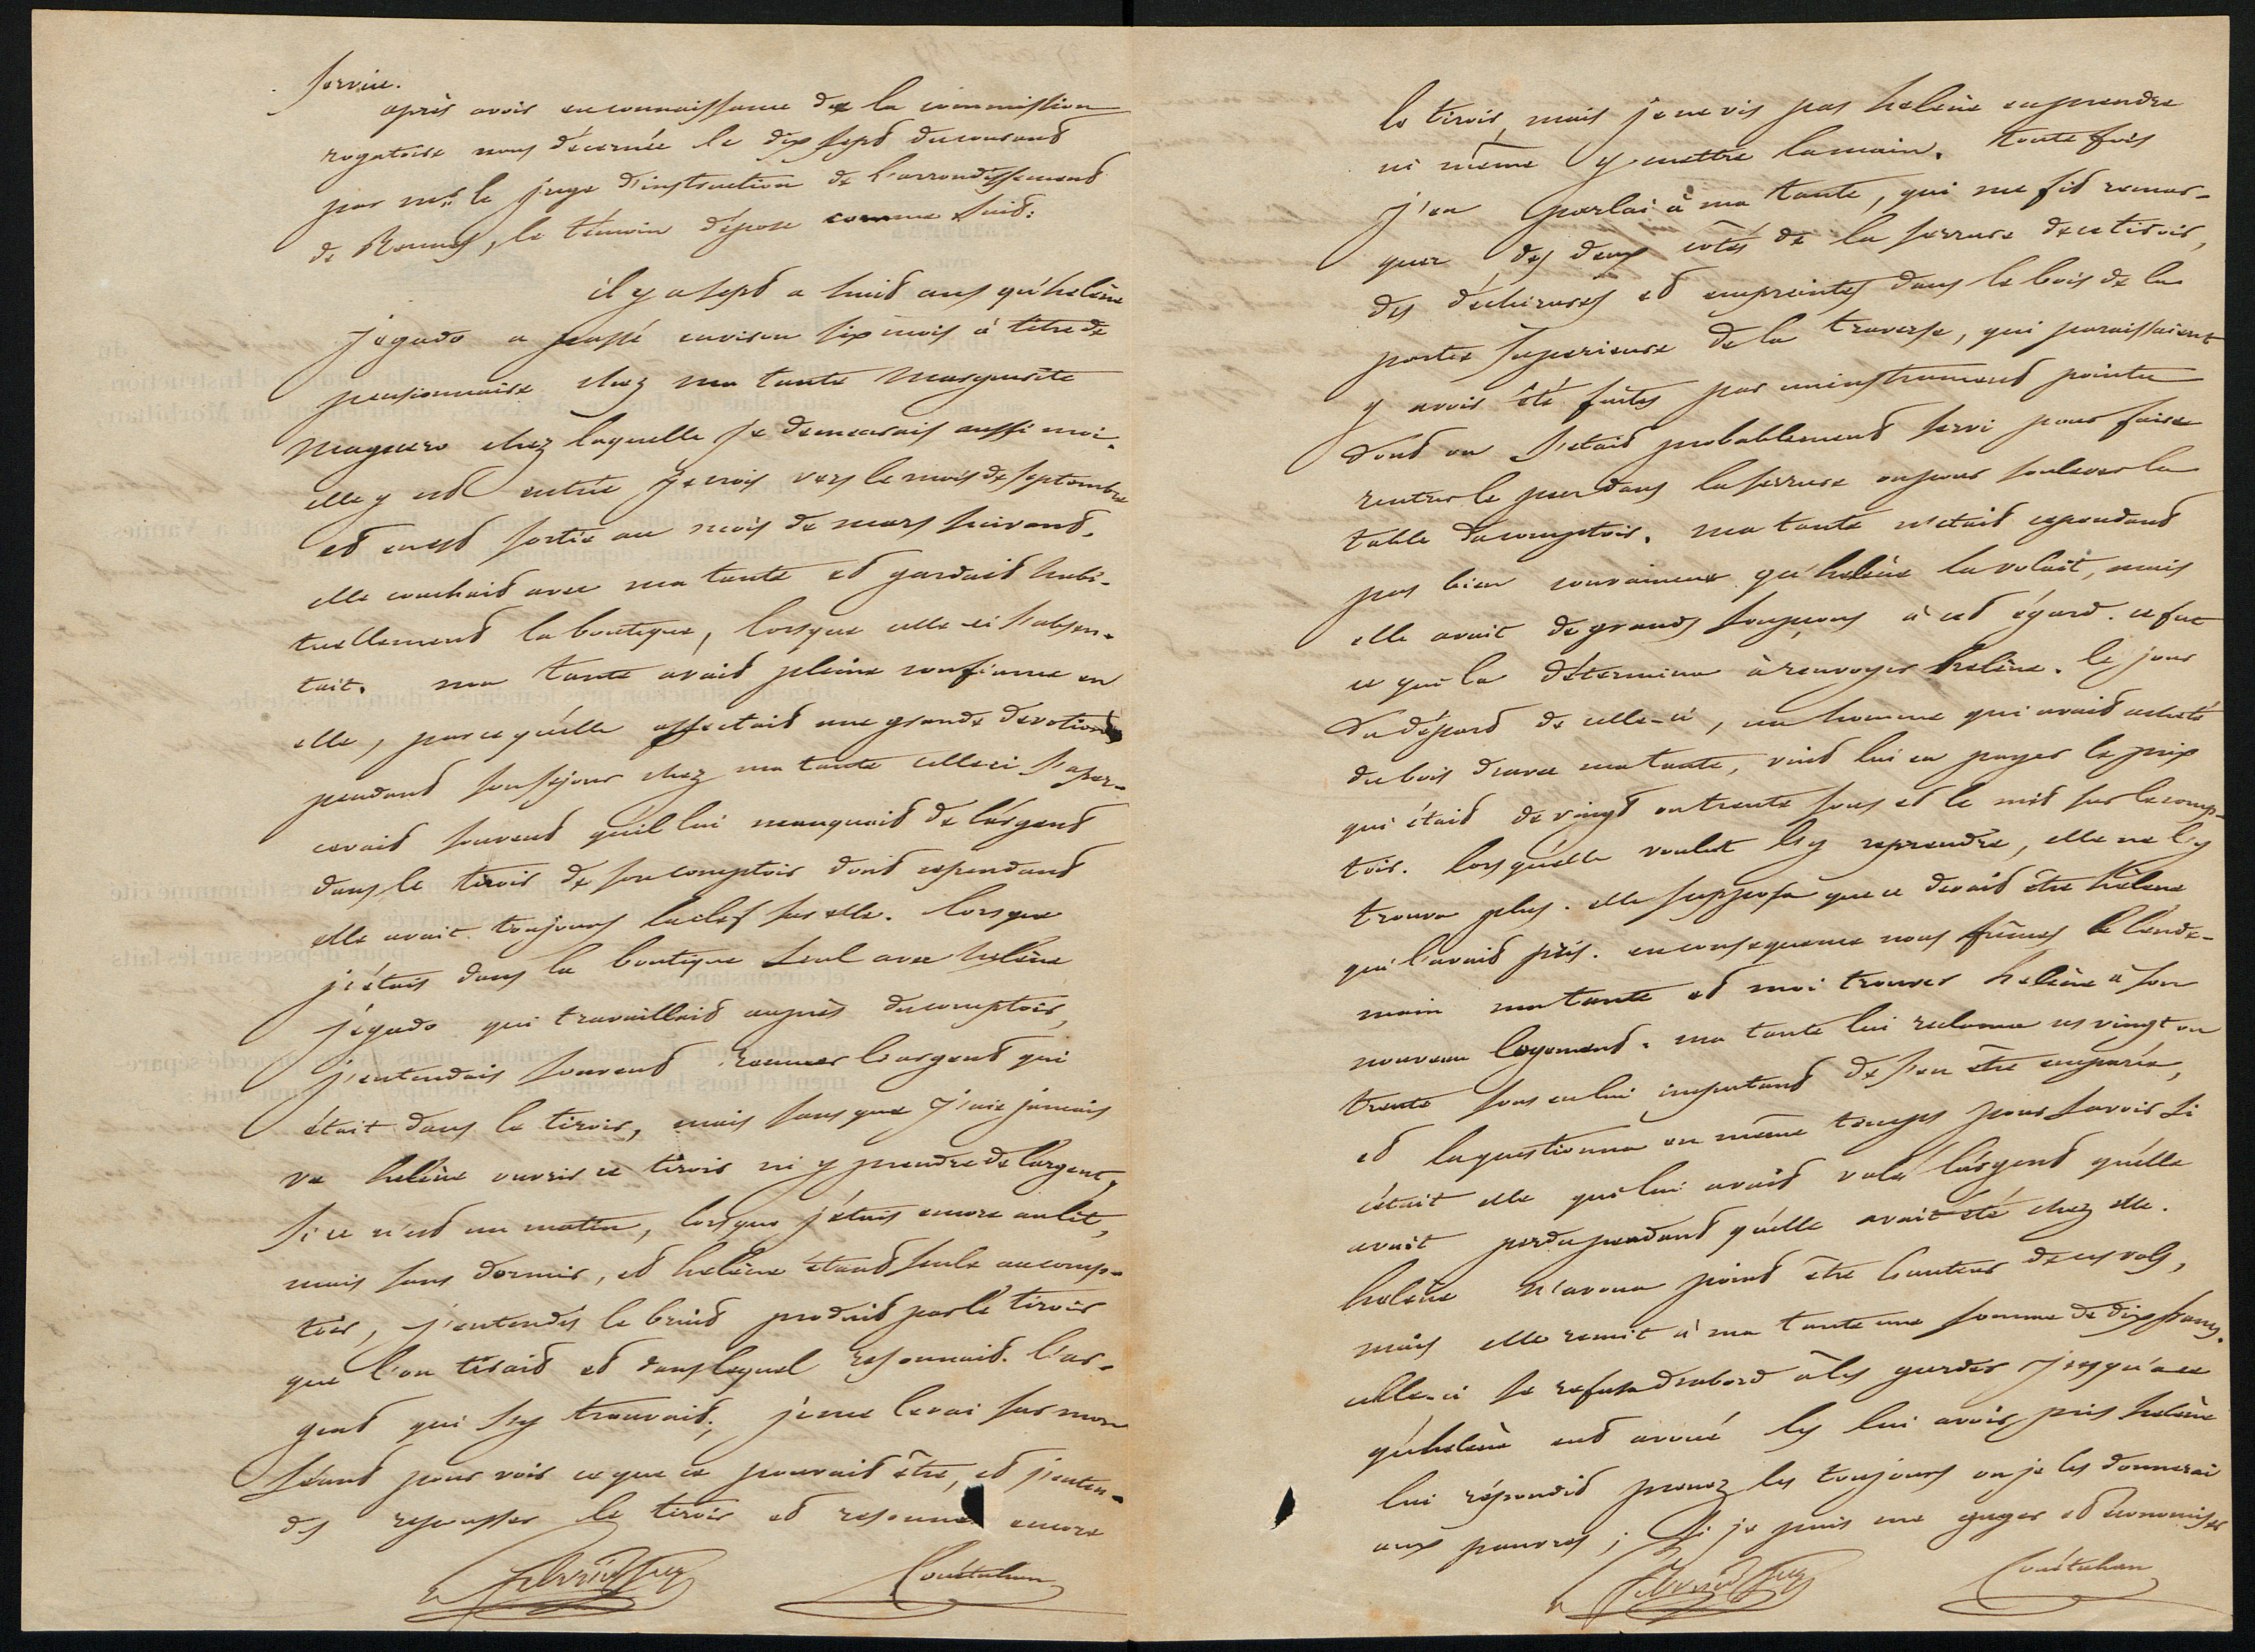 service.
après avoir eu connaissance de la commission
rogatoire nous décernée le dix sept du courant
par mr. le juge d'instruction de l'arrondissement
de Rennes, le témoin dépose comme suit:
il y a sept a huit ans qu'helène
jegado a passé environ six mois à titre de
pensionnaire chez ma tante Marguerite
Maguero chez laquelle je demeurais aussi moi.
elle y est entrée je crois vers le mois de septembre
et en est sortie au mois de mars suivant.
elle couchait avec ma tante et gardait habi-
tuellement la boutique, lorsque celle-ci s'absen-
tait. ma tante avait pleine confiance en
elle, parce qu'elle affectait une grande devotion
pendant son séjour chez ma tante celle ci s'aper-
cevait souvent qu'il lui manquait de l'argent
dans le tiroir de son comptoir dont cependant
elle avait toujours la clef sur elle. lorsque
j'étais dans la boutique seul avec helène
jégado qui travaillait auprès du comptoir,
j'entendais souvent remuer l'argent qui
était dans le tiroir, mais sans que j'aie jamais
vu helène ouvrir ce tiroir ni y prendre de l'argent,
si ce n'est un matin, lorsque j'étais encore au lit,
mais sans dormir, et helène étant seule au comp-
toir, j'entendis le bruit produit par le tiroir
que l'on tirait et dans lequel resonnait l'ar-
gent qui s'y trouvait; je me levai sur mon
séant pour voir ce que ce pouvait être, et j'enten-
dis repousser le tiroir et resonner encore
Coustuhan
le tiroir, mais je ne vis pas helène en prendre
ni même y mettre la main. toute fois
j'en parlai à ma tante, qui me fit remar-
quer des deux côtés de la serrure de ce tiroir,
des déchirures et empreintes dans le bois de la
partie superieure de la traverse, qui paraissaient
y avoir été faites par un instrument pointu
dont on s'était probablement servi pour faire
rentrer le pêne dans la serrure ou pour soulever la
table du comptoir. ma tante n'était cependant
pas bien convaincue qu'helène la volait, mais
elle avait de grands soupçons à cet égard. ce fut
ce qui la détermina à renvoyer helène. le jour
du départ de celle-ci, un homme qui avait acheté
du bois d'avec ma tante, vint lui en payer le prix
qui était de vingt ou trente sous et le mit sur le comp-
toir. lorsqu'elle voulut les y reprendre, elle ne les y
trouva plus. elle supposa que ce devait être hélène
qui l'avait pris. en consequence nous fûmes le lende-
main ma tante et moi trouver helène à son
nouveau logement. ma tante lui reclama ces vingt ou
trente sous en lui imputant de s'en être emparée,
et la questionna en même temps pour savoir si
c'était elle qui lui avait volé l'argent qu'elle
avait perdu pendant qu'elle avait été chez elle.
helène n'avoua point être l'auteur de ces vols,
mais elle remit à ma tante une somme de dix francs.
celle-ci se refusa d'abord à les garder jusqu'a ce
qu'helène eut avoué les lui avoir pris helène
lui répondit prenez les toujours ou je les donnerai
aux pauvres; si je puis me gager et économiser
Coustuhan